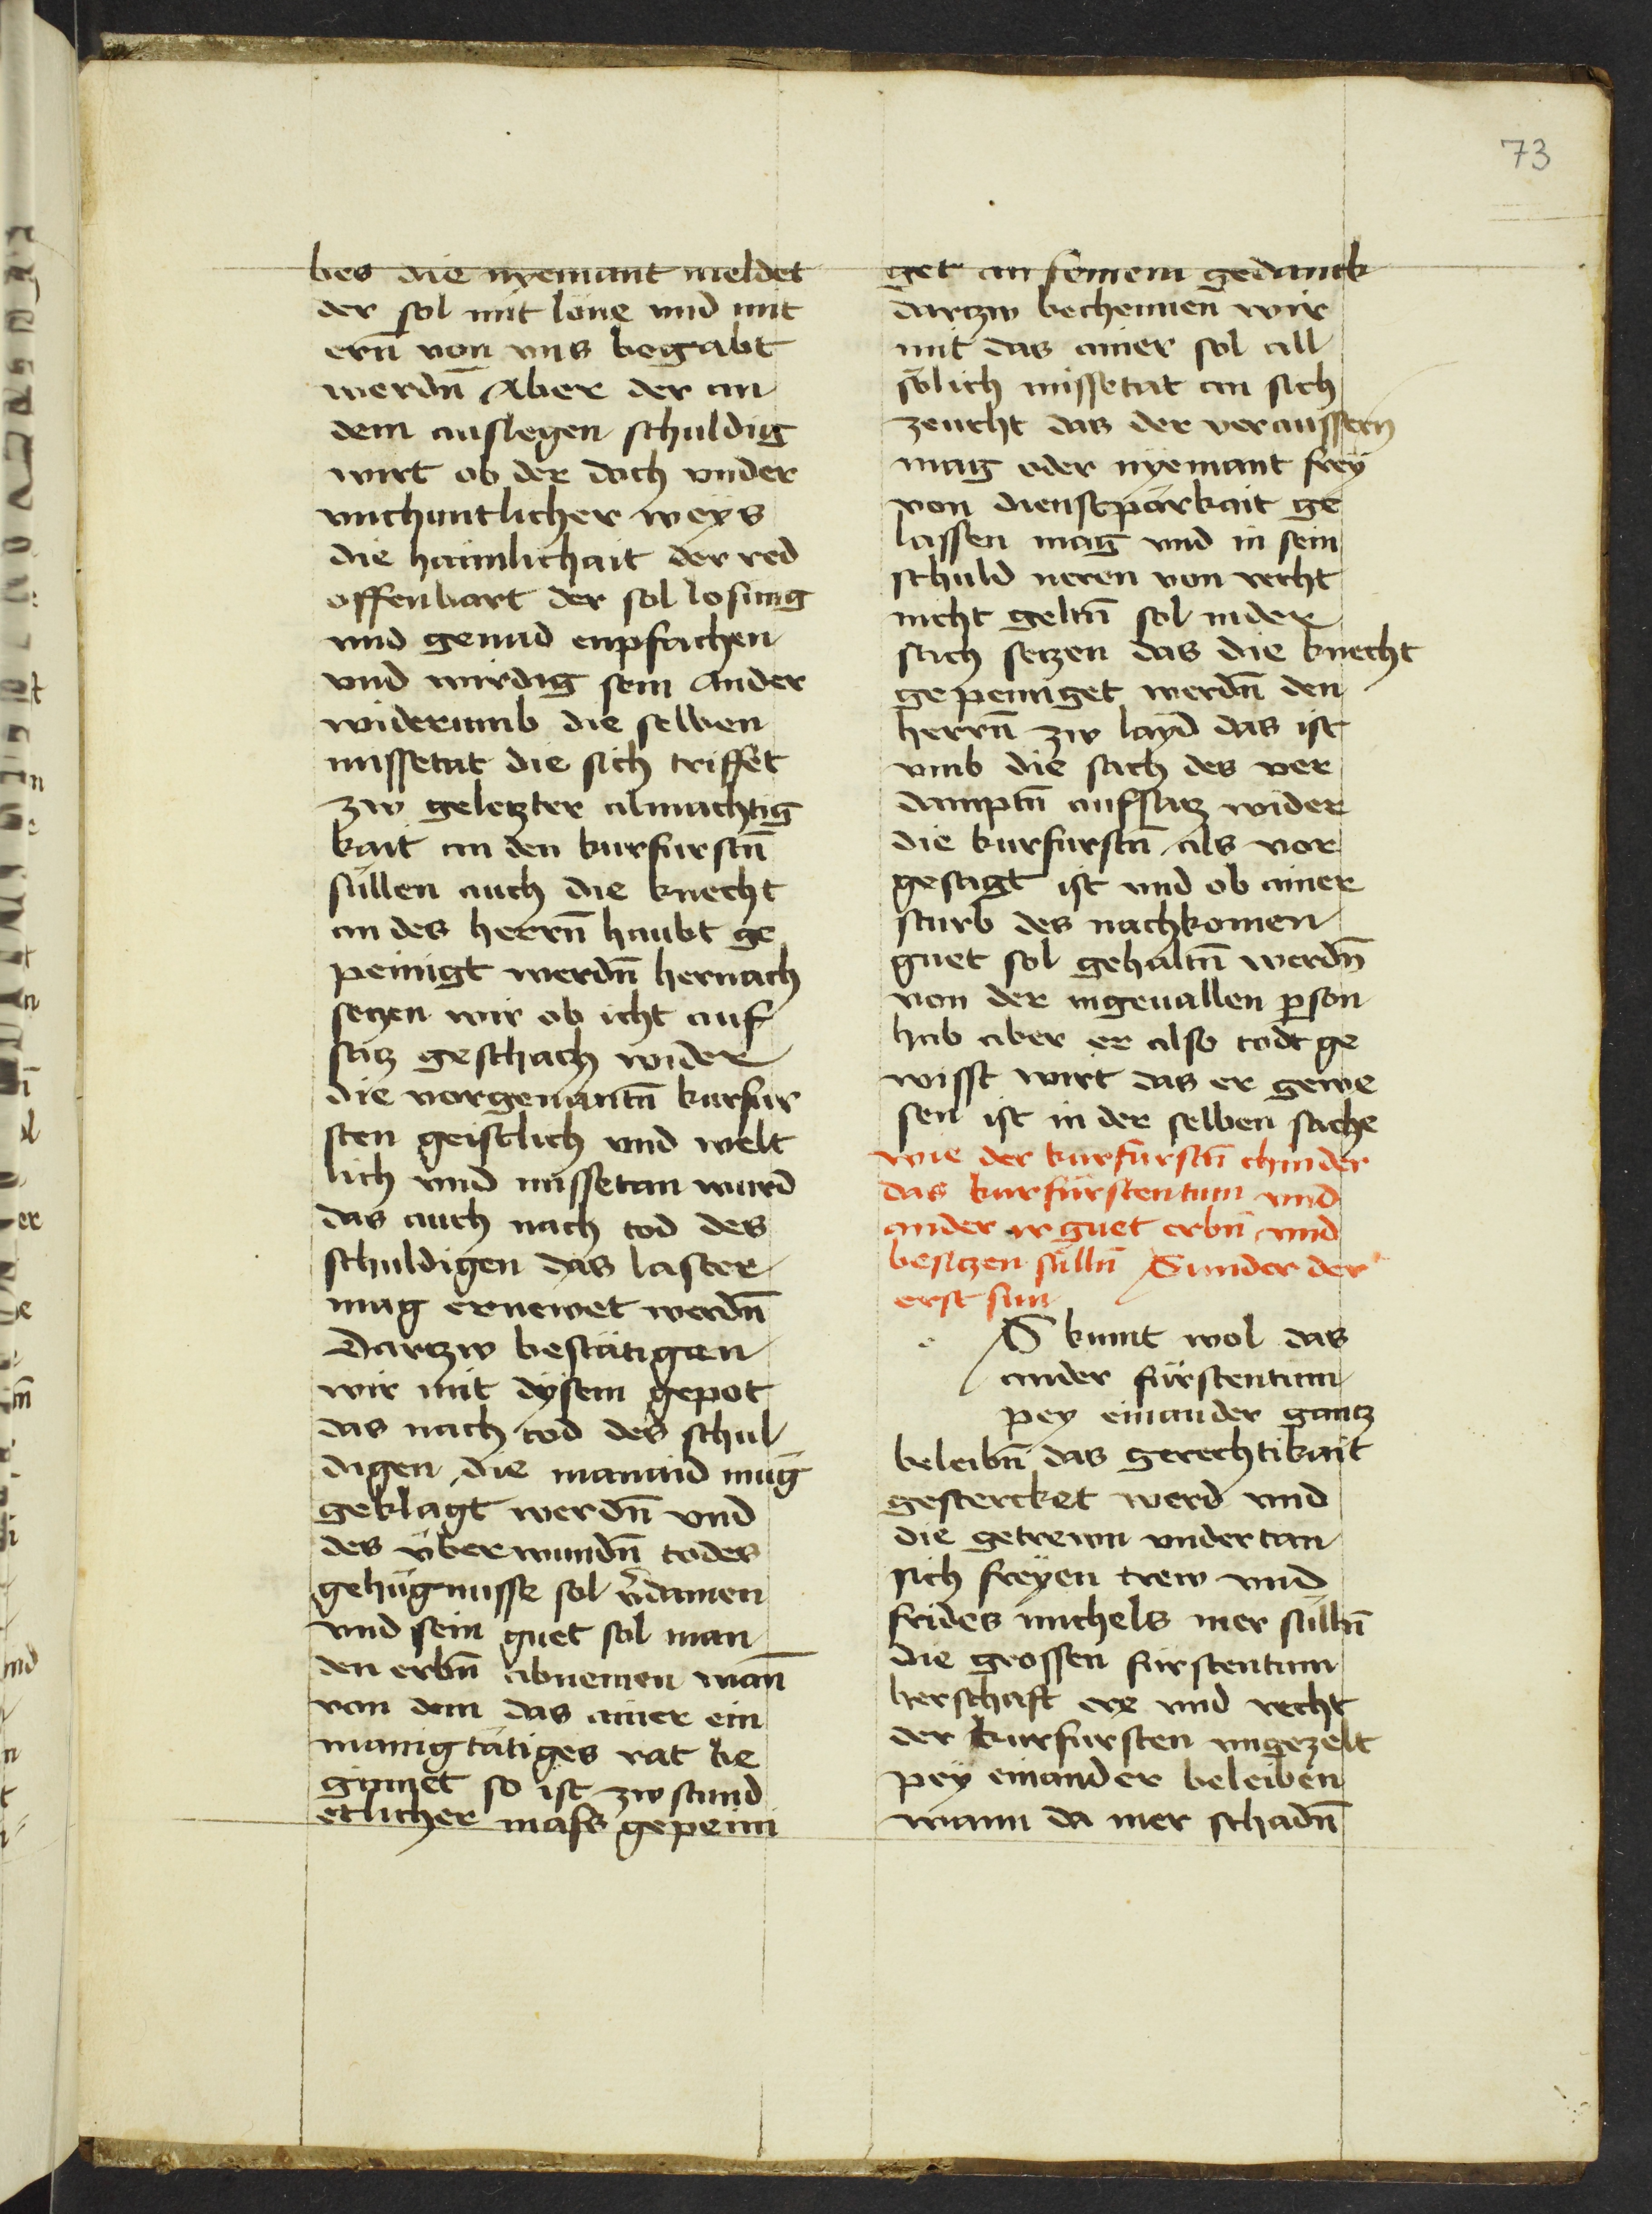 73
bes die nyemant meldet
der sol mit lone vnd mit
ern̄ von vns begabt
werdn̄ Aber der an
dem auslegen schuldig
wirt ob der doch vnder
vnchuntlicher weys
die haimlichait der red
offenbart der sol losung
vnd genad enpfachen
vnd wirdig sein Ander
widerumb die selben
missetat die sich triffet
zw geletzter almachtig
kait an den kurfurstn̄
sullen auch die knecht
an des herrn̄ haubt ge
peinigt werdn̄ hernach
setzen wir ob icht auf
satz geschach wider
die vorgenantn̄ kurfur
sten geistlich vnd welt
lich vnd missetan wurd
das auch nach tod des
schuldigen das laster
mag ernewet werdn̄
Dartzw bestätigen
wir mit dysem gepot
das nach tod des schul
digen die manaid mug
geklagt werdn̄ vnd
des vberwundn̄ todes
gehügnusse sol v̾damen
vnd sein guet sol man
den erbn̄ abnemen wan̄
von dem das ainer ein
manigtätiges rat be
ginnet so ist zw stund
etlicher mass gepeini
get an seinem gedanck
dartzw bechennen wir
mit das ainer sol all
sölich missetat an sich
zeucht das der veraussern
mag oder nyemant frey
von dienstparkait ge
lassen mag vnd in sein
schuld neren von recht
nicht geltn̄ sol in der
sach setzen das die knecht
gepeiniget werdn̄ den
herrn̄ zw layd das ist
vmb die sach des ver
damptn̄ aufsatz wider
die kurfurstn̄ als vor
gesagt ist vnd ob ainer
starb des nachkomen
guet sol gehaltn̄ werdn̄
von der ingeuallen p̱son
hab aber er also todt ge
wisst wirt das er gewe
sen ist in der selben sache
wie der kurfurstn̄ chinder
das kurfürstentum vnd
ander ir guet erbn̄ vnd
besitzen sülln̄ Sunder der
erst sun
S kumt wol das
ander fürstentum
pey einander gantz
beleibn̄ das gerechtikait
gestercket werd vnd
die getrewn vndertan
sich freyen trew vnd
frides michels mer sülln̄
die grossen fürstentum
herschaft ere vnd recht
der kurfursten vngezelt
pey einander beleiben
wann da mer schadn̄